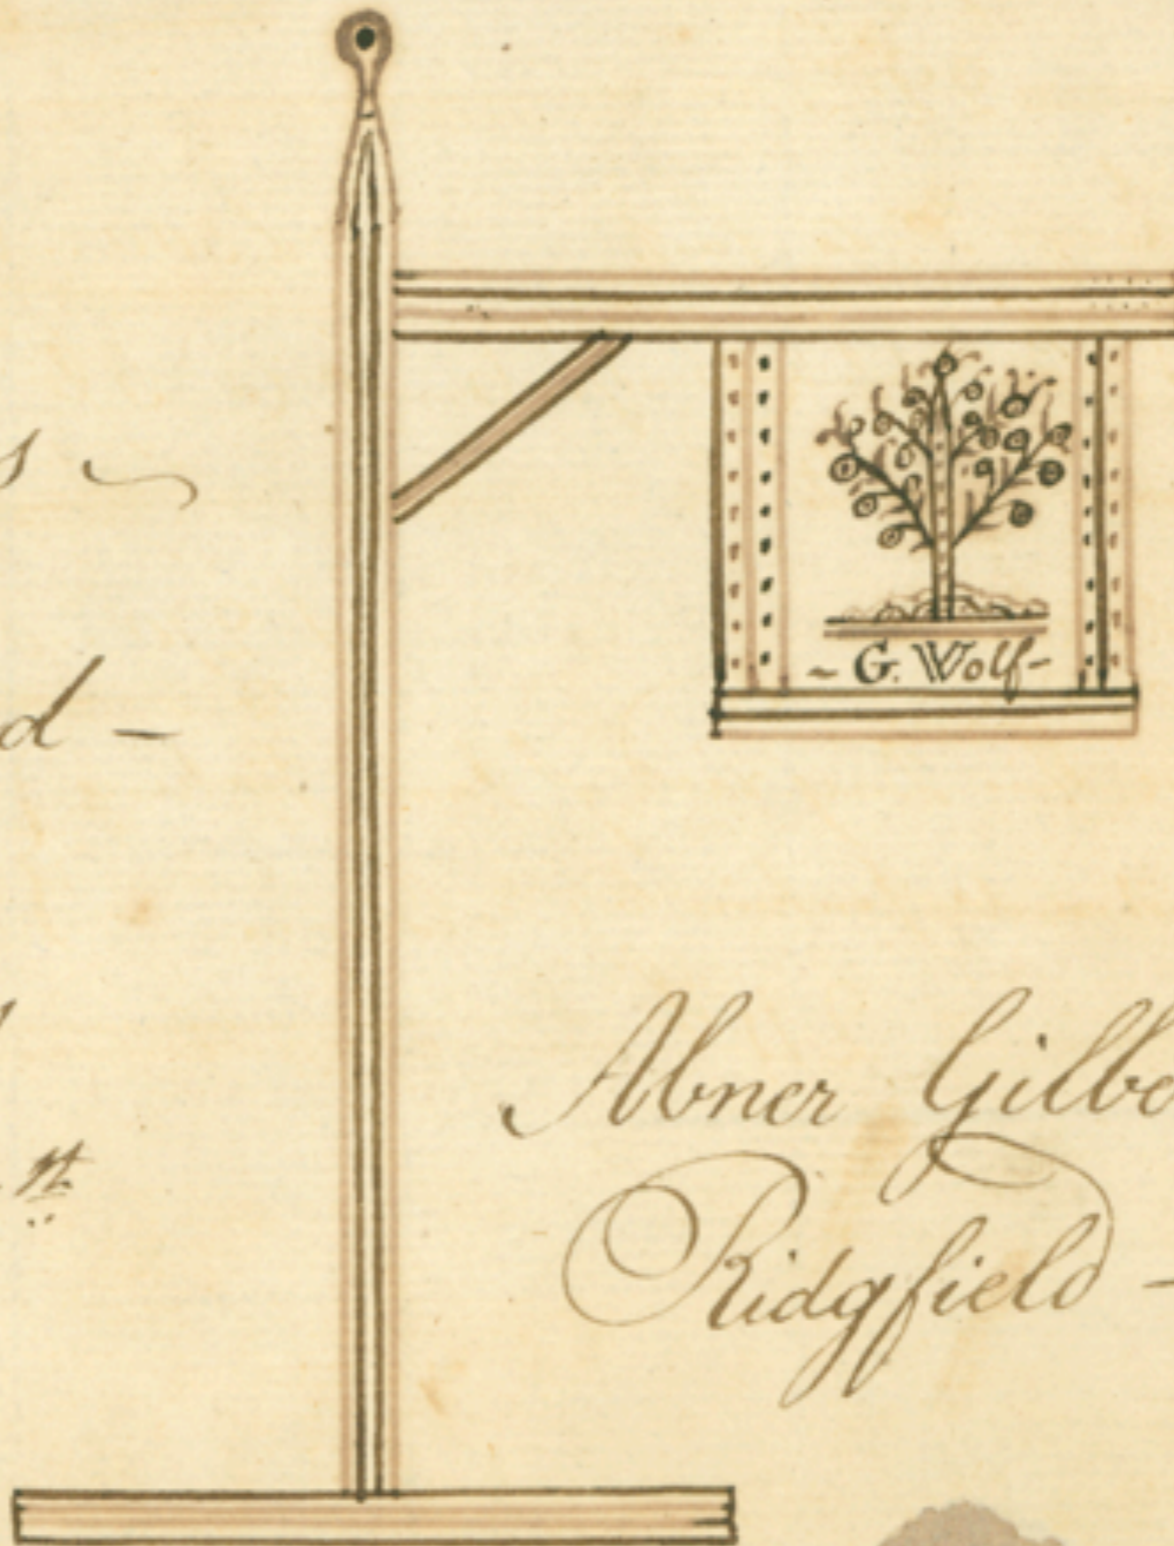 s
d -
- G. Wolf -
Abner Gilbe
Ridgfield -